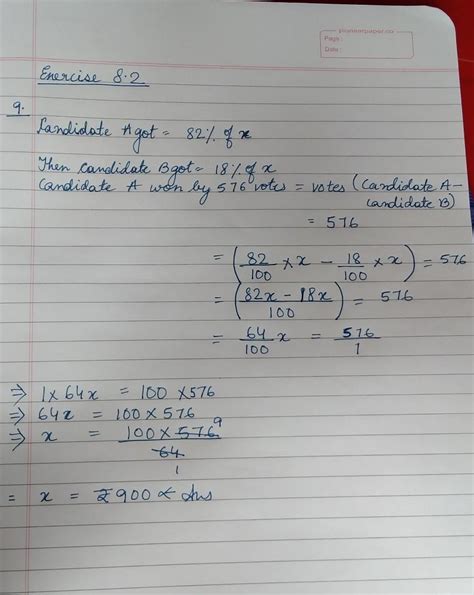 pioneerpaper.co
Page:
Date:
Exercise 8.2
9.
Candidate A got = 82% of x
Then candidate B got = 18% of x
Candidate A won by 576 votes = votes (Candidate A -
candidate B)
= 576
= (82/100 × x - 18/100 × x) = 576
= (82x - 18x / 100) = 576
= 64/100 x = 576/1
⇒ 1 × 64x = 100 × 576
⇒ 64x = 100 × 576
⇒ x = 100 × 576 9 / 64 1
= x = ₹ 900 ← Ans